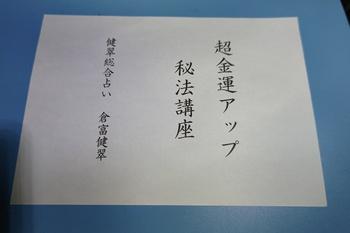 超金運アップ
秘法講座
健翠総合占い　倉富健翠